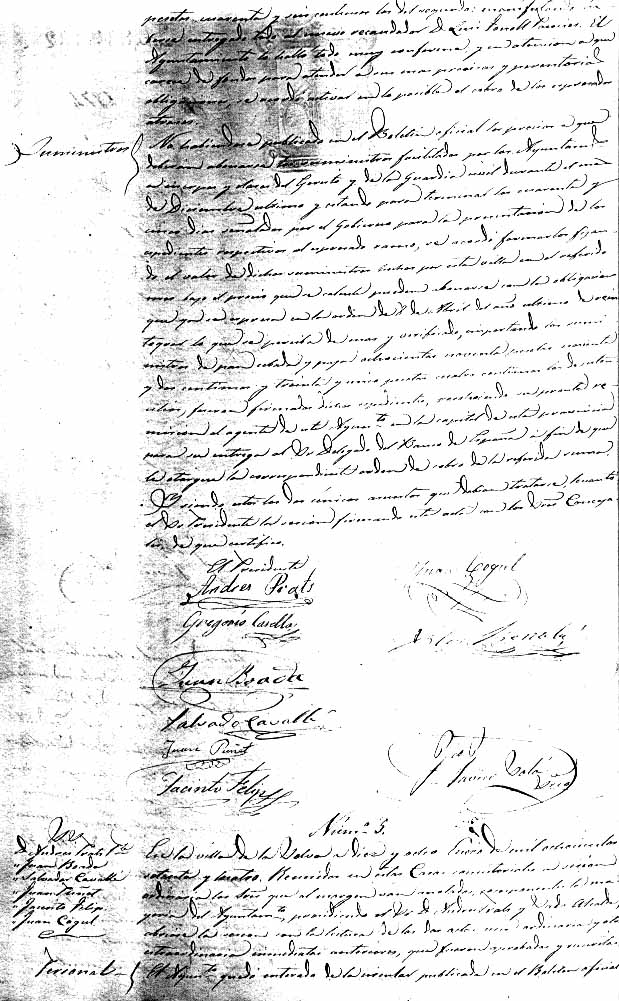 pesetas cuarenta y seis centimos las del segundo: manifestando
haberse entregado todo al mismo recaudador D. Luis
Ayuntamiento lo halla todo muy conforme, y en atencion a que
carece de fondos para atender a sus mas precisas y perentorias
obligaciones, se acordó activar en lo posible el cobro de los expresados
atrasos.
Suministros
No habiendose publicado en el Boletin oficial los precios a que
deberan abonarse los suministros facilitados por los Ayuntamientos
a cuerpos y clases del Egercito y de la Guardia civil durante el mes
de Diciembre ultimo y estando para terminar los cuarenta y
cinco dias señalados por el Gobierno para la presentacion de los
espedientes respectivos al espresado ramo, se acordó formarlos fijan
do el valor de dichos suministros hechos por esta villa en el referido
mes bajo el precio que se calcula pueden abonarse con la obligacion
que ya se espresa en la orden de 8 de Abril del año ultimo de rein
tegrar lo que se perciba de mas y verificado, importando los sumi
nistros de pan cebada y paja ochocientas noventa pesetas noventa
y dos centimos y treinta y cinco pesetas centimos los de
fueron firmados dichos espedientes, acordando su pronta re
mision al agente de este Ayuntº en la capital de esta provincia
para su entrega al Sr Delegado del Banco de España a fin de que
le otorgue la correspondiente orden de cobro de la referida suma.
Y siendo estos los dos únicos asuntos que debian tratarse, levantó
el Sr Presidente la sesion firmando este acta con los Sres Conceja
les, de que certifico.
El Presidente
Andres Prats
Juan Cogul
Gregorio Casellas
Juan Boada
Salvado Cavallé
Juan Punet
Jacinto Felip
Javier
Srio
Núm.º 5.
Sres
D. Andres Prats Pte
" Juan Boada
" Salvador Cavalle
" Juan Punet
" Jacinto Felip
" Juan Cogul
En la villa de la Selva a diez y ocho Enero de mil ochocientos
setenta y cuatro. Reunidos en estas Casas consistoriales en sesion
ordinaria los Sres que al margen van anotados, componente la ma
yoria del Ayuntamtº, presidiendo el Sr D. Andres Prats y Alcalde,
abriose la sesion con la lectura de las dos actas una ordinaria y otra
extraordinaria inmediatas anteriores, que fueron aprobadas y
Personal
El Ayuntº quedó enterado de la circular publicada en el Boletin oficial